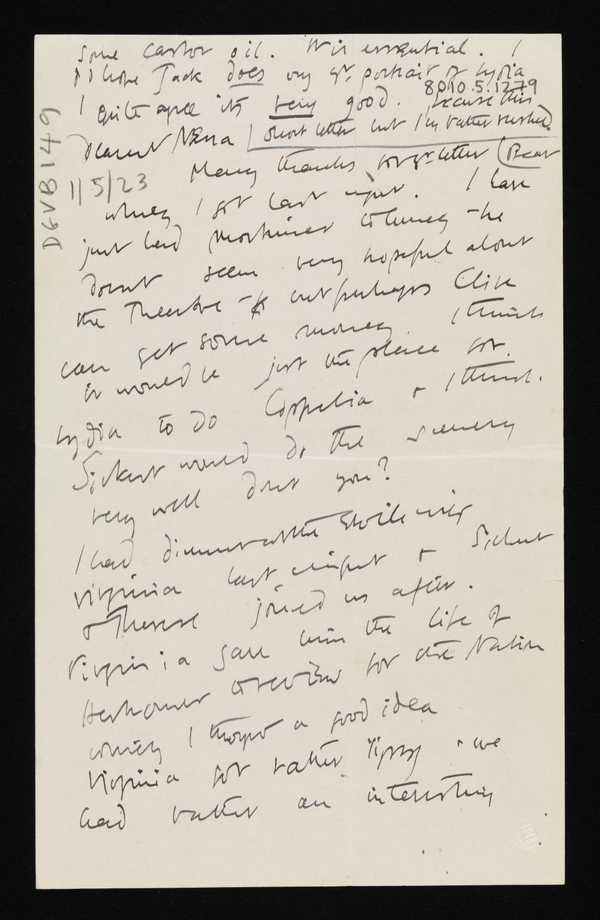 some castor oil. It is essential. I
do hope Jack does my gt. portrait of Lydia
I quite agree it's very good. 8010.5.1279
Dearest Nessa Excuse this short letter but I'm rather rushed.
DGVB149
11/5/23
Many thanks for yr letter (Bear
which I got last night. I have
just had Mortimer to lunch – he
doesnt seem very hopeful about
the Theatre – but perhaps Clive
can get some money. I think
it would be just the place for
Lydia to do Coppelia & I think
Sickert would do the scenery
very well dont you?
I had dinner at the Etoile with
Virginia last night & Sickert
& Therese joined us after.
Virginia gave him the life of
Herkomer to review for the Nation
which I thought a good idea
Virginia got rather tipsy & we
had rather an interesting